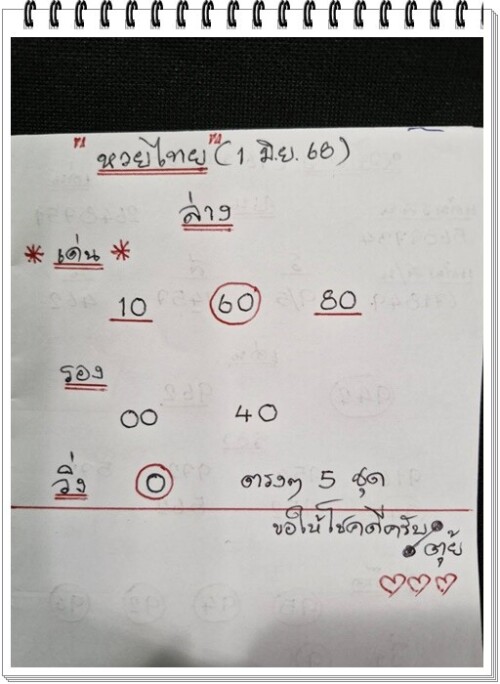 " หวยไทย " (1 มิ.ย. 68)
ล่าง
* เด่น *
10 60 80
รอง
00 40
วิ่ง 0 ตรงๆ 5 ชุด
ขอให้โชคดีครับ
ตุ้ย
♡♡♡